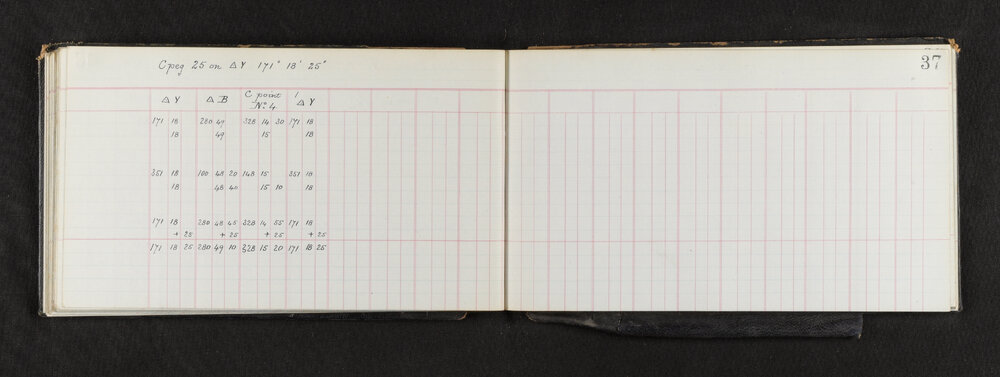 C peg 25 on Δ Y 171° 18' 25"
37
Δ Y Δ B C point No 4 Δ Y
171 18 280 49 328 14 30 171 18
18 49 15 18
351 18 100 48 20 148 15 351 18
18 48 40 15 10 18
171 18 280 48 45 328 14 55 171 18
+ 25 + 25 + 25 + 25
171 18 25 280 49 10 328 15 20 171 18 25